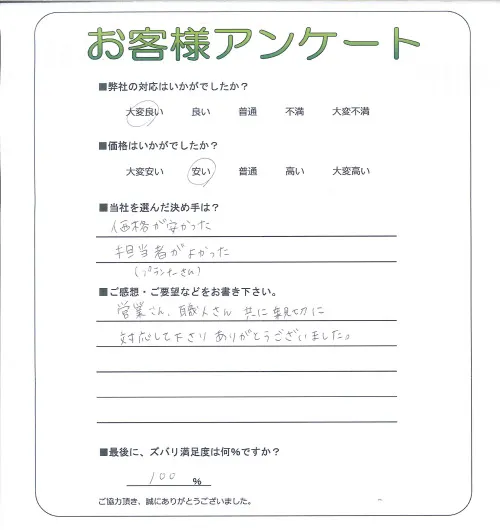 お客様アンケート
■弊社の対応はいかがでしたか？
大変良い 良い 普通 不満 大変不満
■価格はいかがでしたか？
大変安い 安い 普通 高い 大変高い
■当社を選んだ決め手は？
価格が安かった
担当者がよかった
(プランナーさん)
■ご感想・ご要望などをお書き下さい。
営業さん、職人さん 共に親切に
対応して下さり ありがとうございました。
■最後に、ズバリ満足度は何%ですか？
100 %
ご協力頂き、誠にありがとうございました。